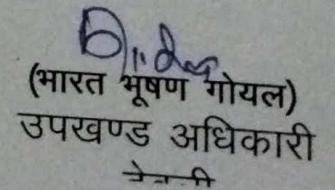 (भारत भूषण गोयल)
उपखण्ड अधिकारी